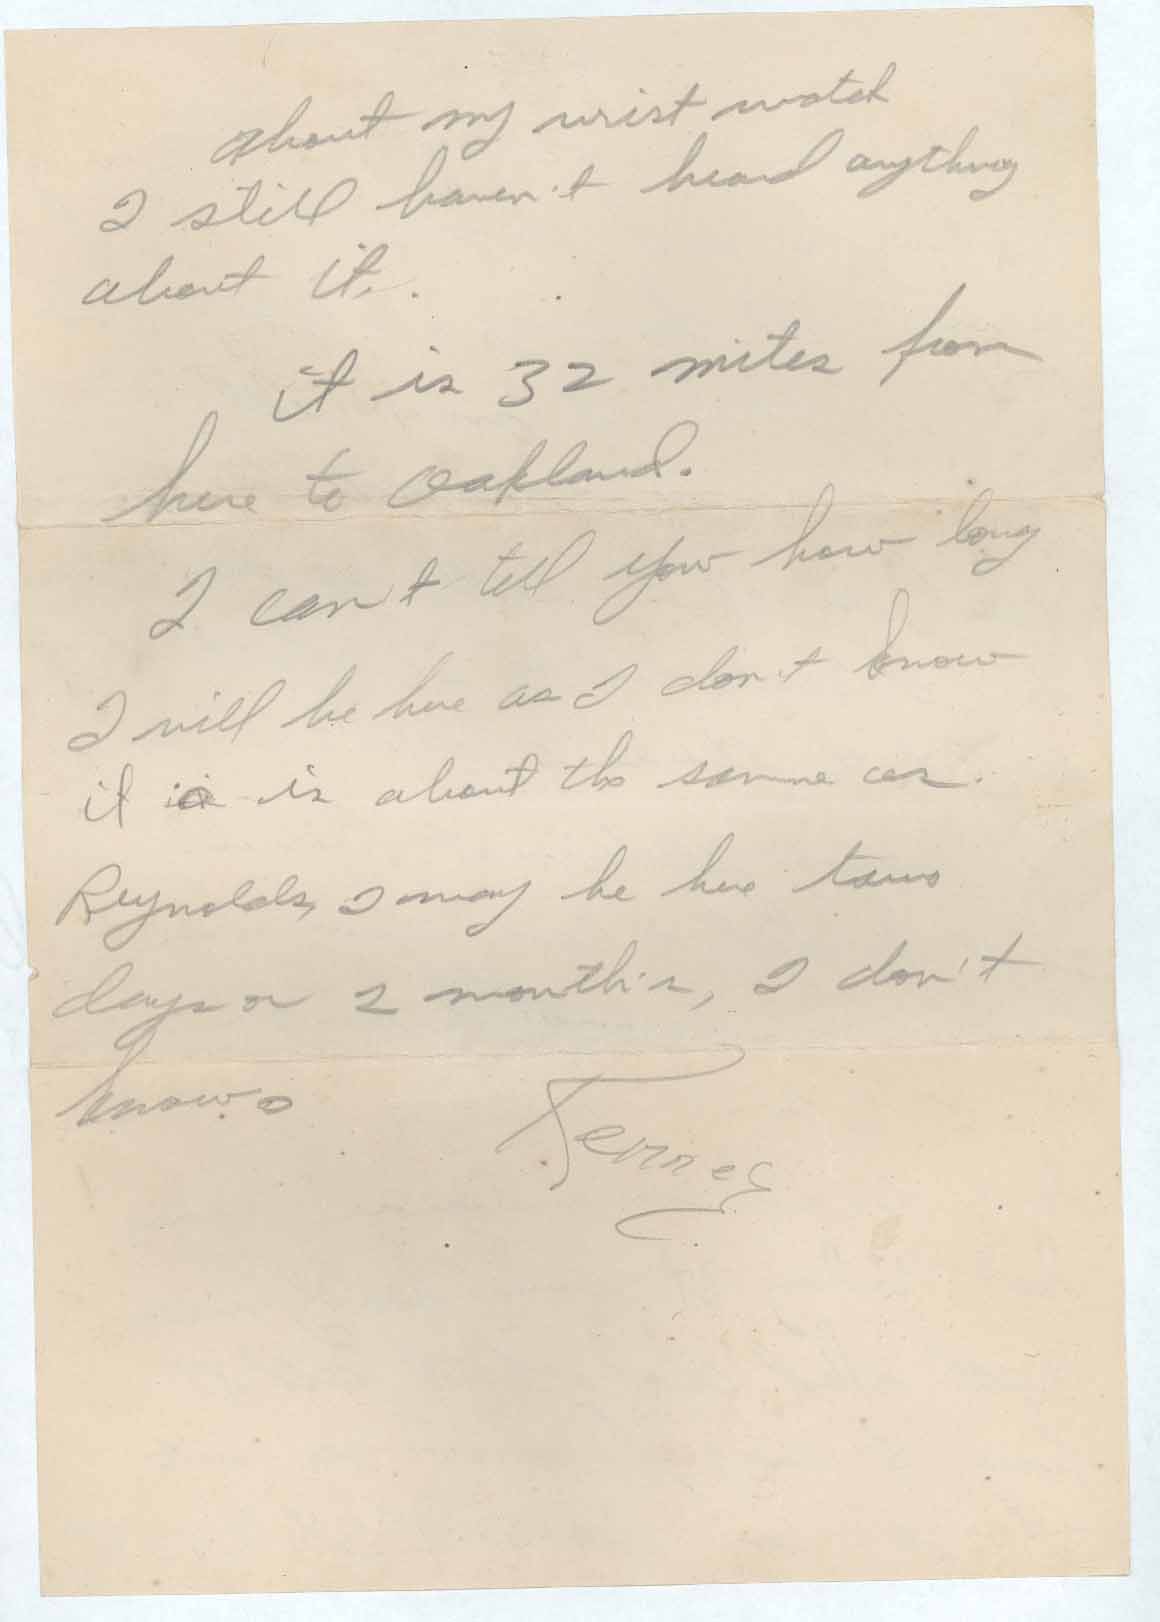 about my wrist watch
I still haven't heard anything
about it.
it is 32 miles from
here to Oakland.
I can't tell you how long
I will be here as I don't know
it is about the same as
Reynolds, I may be here two
days or 2 months, I don't
know.